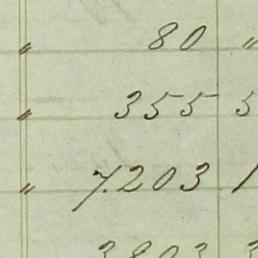 " 80 "
" 355 5
" 7.203 1